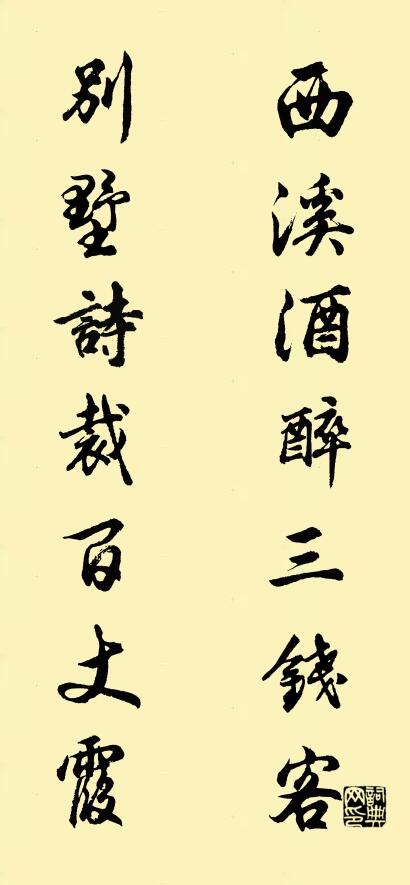 西溪酒醉三錢客
別墅詩裁百丈霞
詞典網印